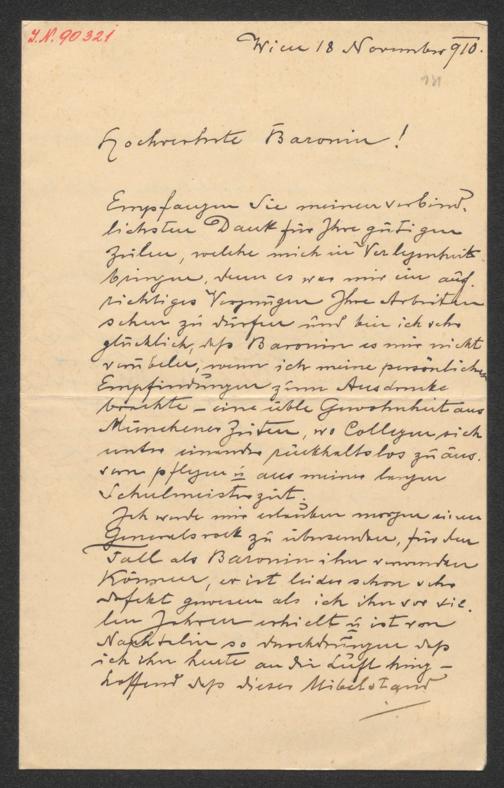 J.N. 90321
Wien 18 November 910.
Hochverehrte Baronin!
Empfangen Sie meinen verbind-
lichsten Dank für Ihre gütigen
Zeilen, welche mich in Verlegenheit
bringen, denn es war mir ein auf-
richtiges Vergnügen Ihre Arbeiten
sehen zu dürfen und bin ich sehr
glücklich, daß Baronin es mir nicht
verübeln, wenn ich meine persönlichen
Empfindungen zum Ausdrucke
brachte – eine üble Gewohnheit aus
Münchener Zeiten, wo Collegen sich
unter einander rückhaltslos zu äus-
sern pflegen u aus meiner langen
Schulmeisterzeit.
Ich werde mir erlauben morgen einen
Generalsrock zu übersenden, für den
Fall als Baronin ihn verwenden
können, er ist leider schon sehr
defekt gewesen als ich ihn vor vie-
len Jahren erhielt u ist von
Naphtalin so durchdrungen daß
ich ihn heute an die Luft hing –
hoffend daß dieser Übelstand